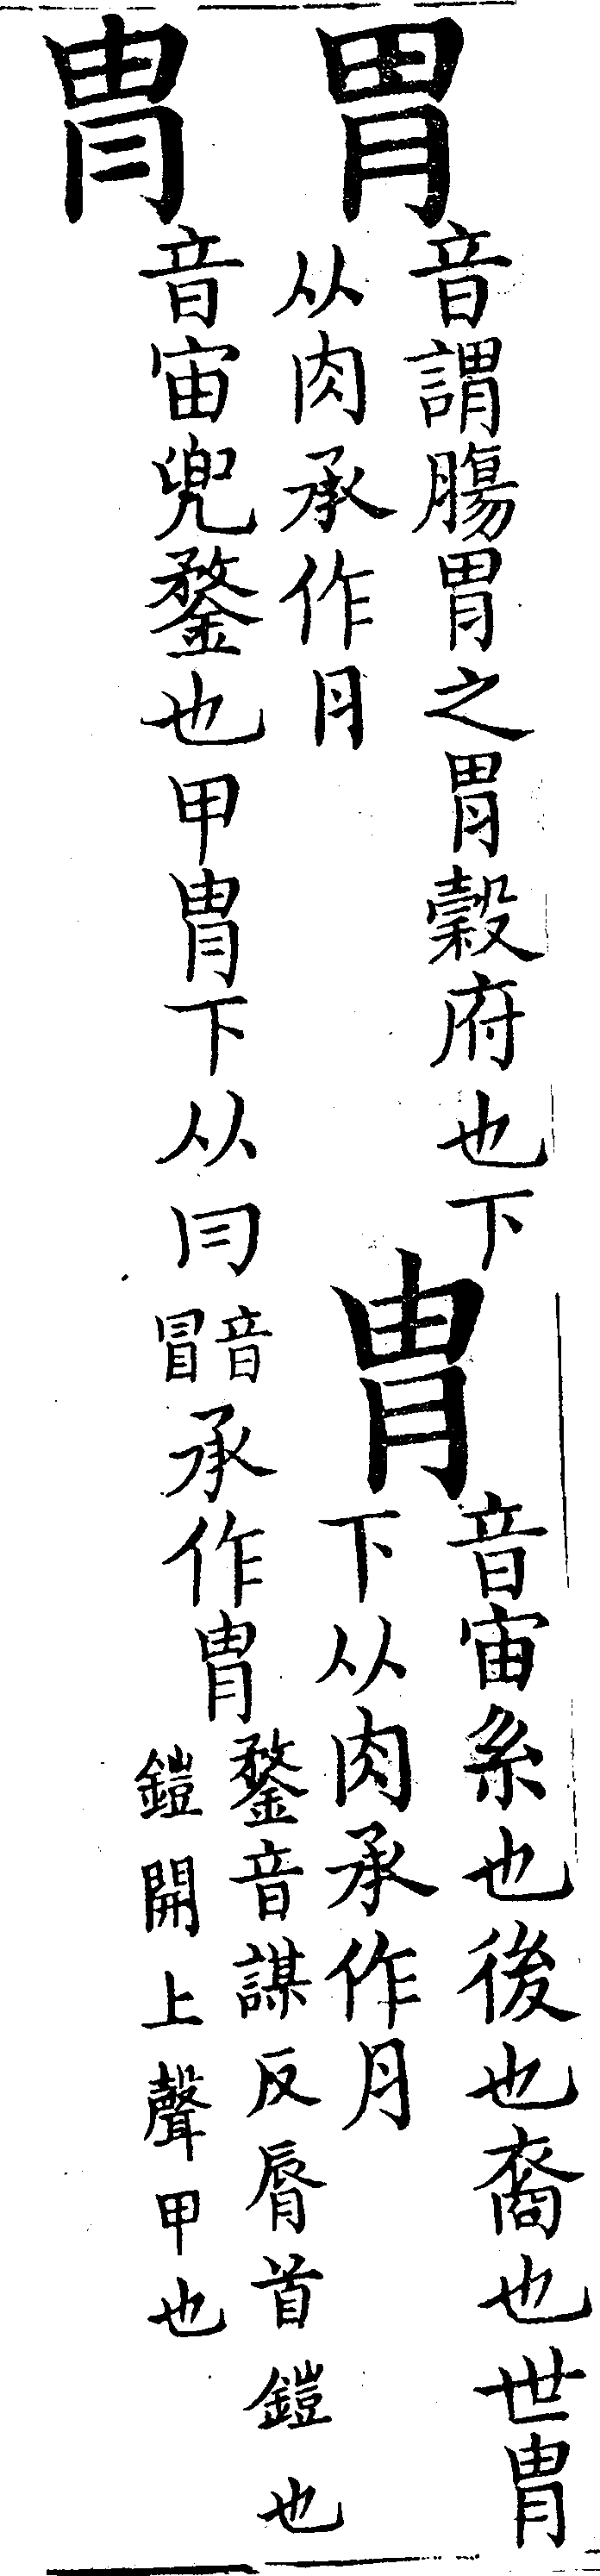 胃
音謂膓胃之胃穀府也下
从肉承作月
胄
音宙系也後也裔也世胄
下从肉承作月
冑
音宙兜鍪也甲冑下从冃
音
冒
承作冑
鍪音謀反脣首鎧也
鎧開上聲甲也